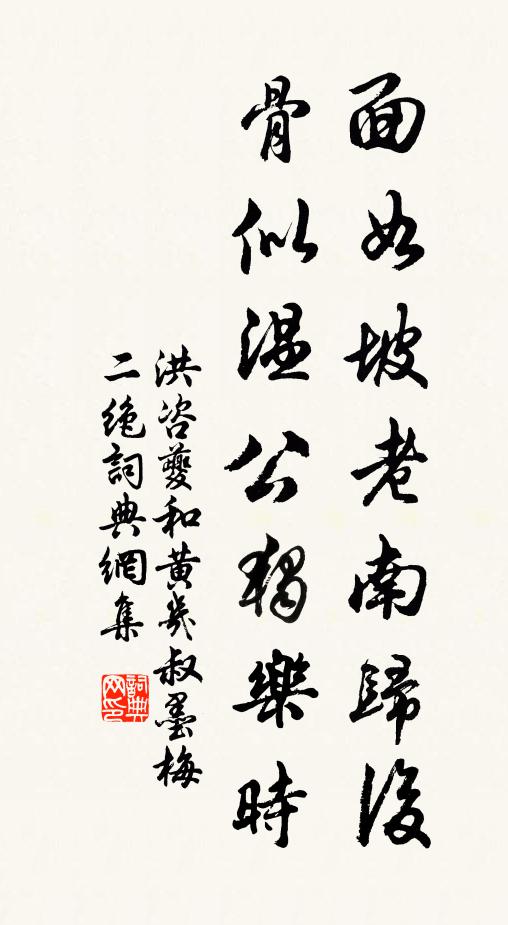 面如坡老南歸後
骨似溫公獨樂時
洪咨夔和黃幾叔墨梅
二絕詞典網集
詞典网印